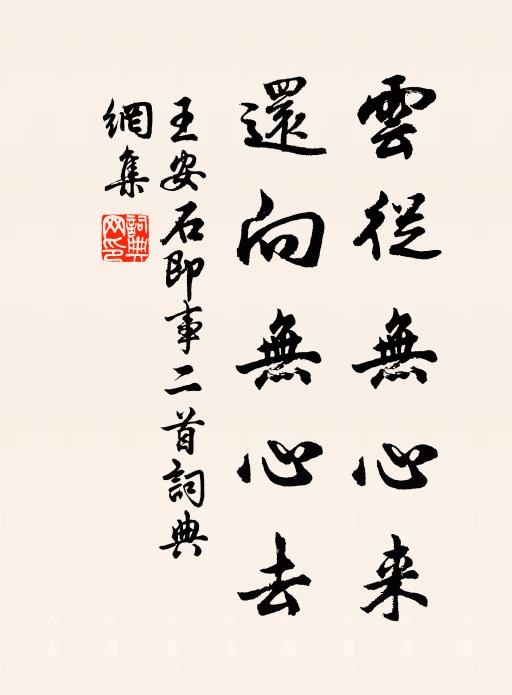 雲從無心来
還向無心去
王安石即事二首詞典
網集
詞典
网印